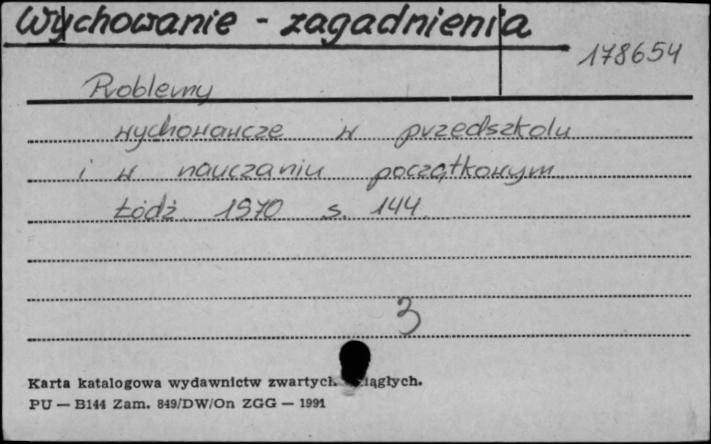 Wychowanie - zagadnienia
178654
Problemy
wychowawcze w przedszkolu
i w nauczaniu początkowym
Łódź 1970 s. 144
3
Karta katalogowa wydawnictw zwartych ciągłych.
PU — B144 Zam. 849/DW/On ZGG — 1991